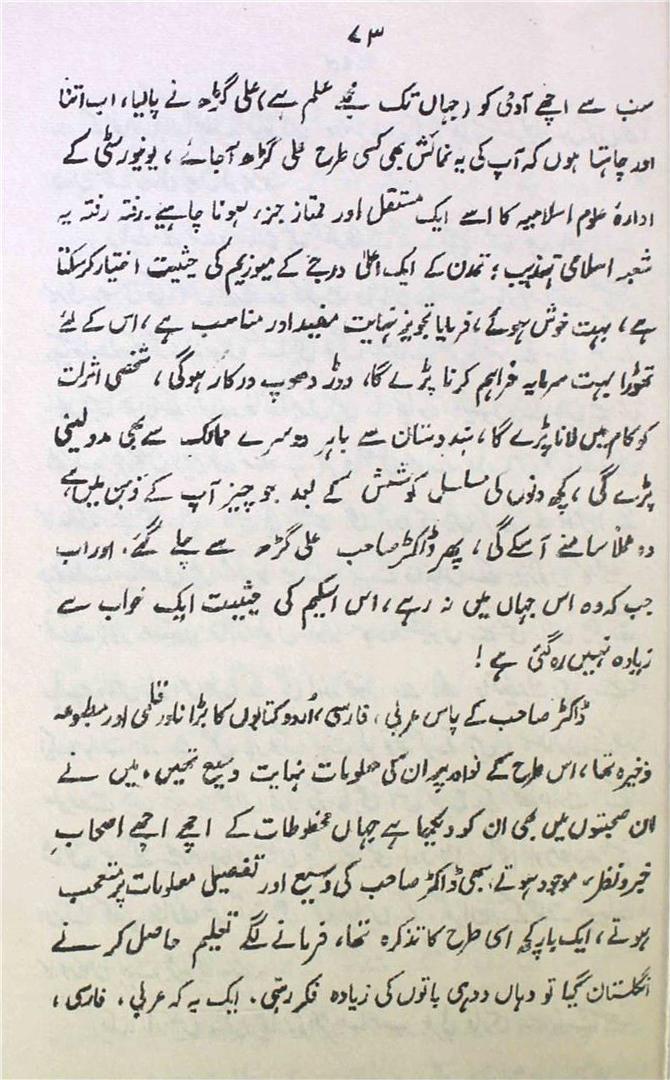 ۷۳
سب سے اچھے آدمی کو (جہاں تک مجھے علم ہے) علی گڑھ نے پالیا، اب اتنا
اور چاہتا ہوں کہ آپ کی یہ نمائش بھی کسی طرح علی گڑھ آجائے، یونیورسٹی کے
ادارۂ علوم اسلامیہ کا اسے ایک مستقل اور ممتاز جزء ہونا چاہیے۔ رفتہ رفتہ یہ
شعبہ اسلامی تہذیب و تمدن کے ایک اعلیٰ درجے کے میوزیم کی حیثیت اختیار کرسکتا
ہے، بہت خوش ہوئے، فرمایا تجویز نہایت مفید اور مناسب ہے، اس کے لئے
تھوڑا بہت سرمایہ فراہم کرنا پڑے گا، دوڑ دھوپ درکار ہوگی، شخصی اثرات
کو کام میں لانا پڑے گا، ہندوستان سے باہر دوسرے ممالک سے بھی مدد لینی
پڑے گی، کچھ دنوں کی مسلسل کوشش کے بعد جو چیز آپ کے ذہن میں ہے
وہ عملاً سامنے آسکے گی، پھر ڈاکٹر صاحب علی گڑھ سے چلے گئے، اور اب
جب کہ وہ اس جہاں میں نہ رہے، اس اسکیم کی حیثیت ایک خواب سے
زیادہ نہیں رہ گئی ہے!
ڈاکٹر صاحب کے پاس عربی، فارسی، اُردو کتابوں کا بڑا نادر قلمی اور مطبوعہ
ذخیرہ تھا، اس طرح کے نوادر پر ان کی معلومات نہایت وسیع تھیں، میں نے
ان صحبتوں میں بھی ان کو دیکھا ہے جہاں مخطوطات کے اچھے اچھے اصحابِ
خبر و نظر، موجود ہوتے، سبھی ڈاکٹر صاحب کی وسیع اور تفصیلی معلومات پر متعجب
ہوتے، ایک بار کچھ اسی طرح کا تذکرہ تھا، فرمانے لگے تعلیم حاصل کرنے
انگلستان گیا تو وہاں دو ہی باتوں کی زیادہ فکر رہتی۔ ایک یہ کہ عربی، فارسی،